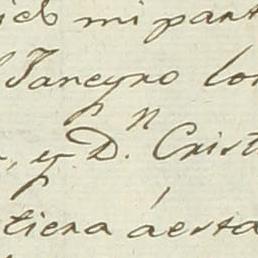 mi part
Janeyro lo
, y D.ⁿ Crist
tiera á esta